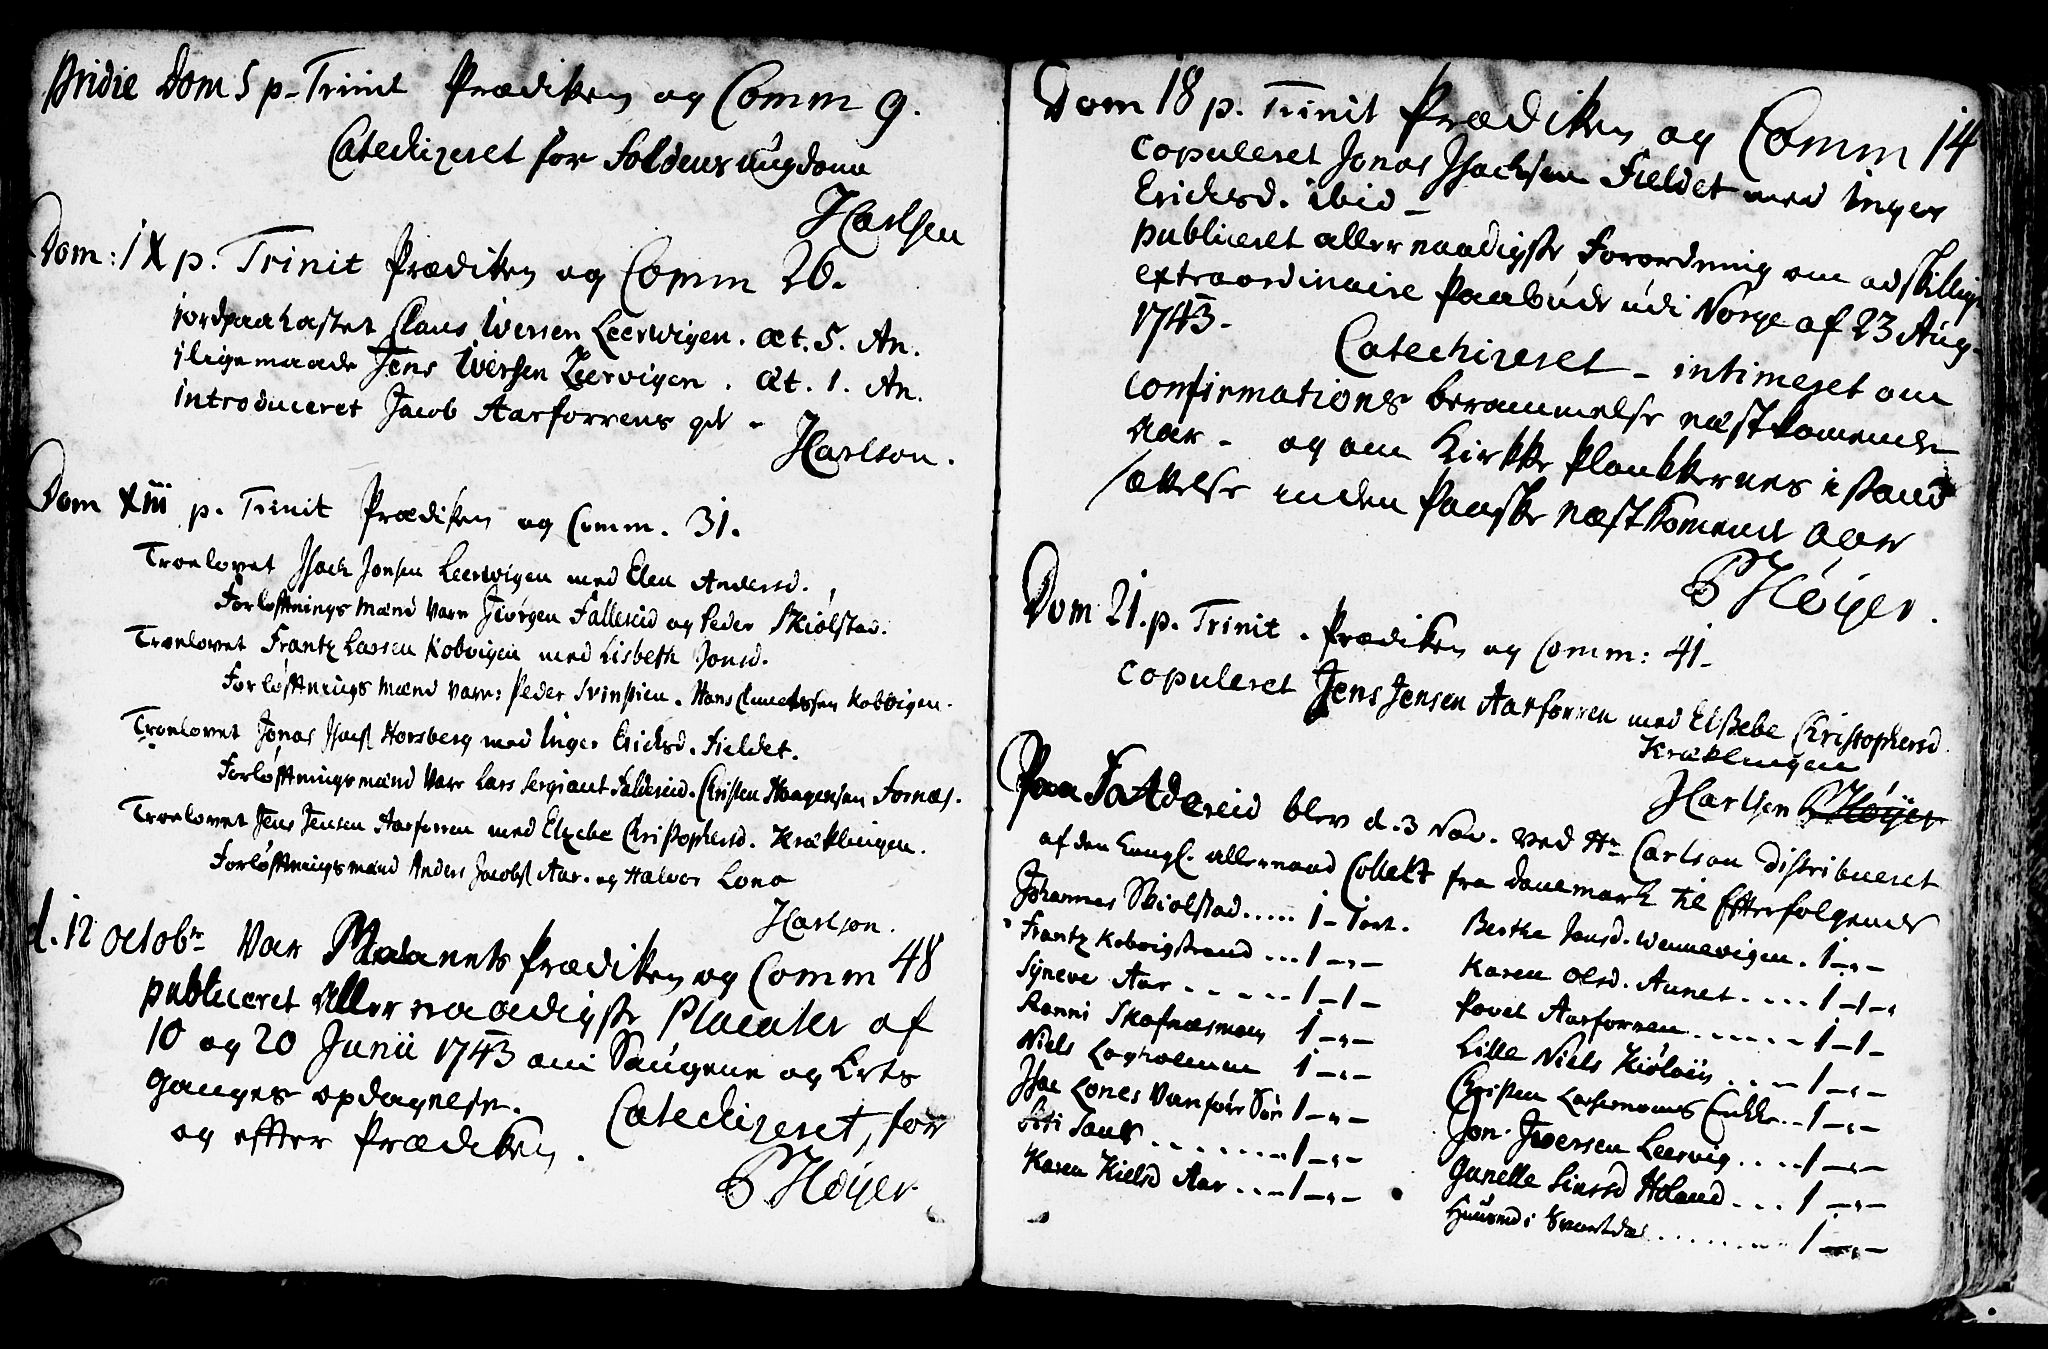 Pridie Dom 5 p. Trinit Prædiken og Comm 9.
Catechizeret for Foldens ungdom
JCarlsen
Dom: IX p. Trinit Prædiken og Comm 26.
jordpaakastet Claus Iversen Leervigen. æt. 5. An.
jligemaade Jens Iversen Leervigen. æt. 1. An.
introduceret Jacob Aarforrens qd -
JCarlson.
Dom XIII p. Trinit Prædiken og Comm. 31.
Troelovet Jsach Jonsen Leervigen med Elen Andersd.
Forløftnings mænd vare Jørgen Fallereid og Peder Skiølstad.
Troelovet Frantz Lassen Kobvigen med Lisbeth Jonsd.
Forløftnings mænd vare: Peder Svinsien. Hans Clmetssen Kobvigen.
Troelovet Jonas Jsachs Horsberg med Inger Ericksd. Fieldet.
Forløftnings mænd vare Lars Sergiant Faldereid. Christen Haagensen Fornæs.
Troelovet Jens Jensen Aarforren med Elzebe Christophersd. Kræklingen.
Forløftnings mænd Anders Jacobs Aar. og Halvor Lona
JCarlson.
d. 12 octobr var Maanets Prædiken og Comm 48
publiceret allernaadigste Placater af
10 og 20 Junii 1743 om Saugene og Erts
ganges opdagelse.
Catechizeret, for
og efter Prædiken.
P Høyer
Dom 18 p. Trinit Prædiken og Comm 14
copuleret Jonas Jsachsen Fieldet med Inger
Ericksd. ibid -
publiceret allernaadigste Forordning om adskillige
extraordinaire Paabude udi Norge af 23 Aug.
1743.
Catechizeret - intimeret om
confirmations berammelse næstkomende
aar - og om Kirkke Plankkernes istand
sættelse inden Paaske næstkomend aar
P Høyer.
Dom 21. p. Trinit. Prædiken og Comm: 41 -
copuleret Jens Jensen Aarforren med Elsebe Christophersd.
Kræklingen
JCarlsen P Høyer
Paa Faldereid blev d. 3 Nov. ved Hr Carlson distribueret
af den Kongl. allernaad Collect fra Danemark til Effterfølgende
Johannes Skiolstad..... 1 - 1 ort.
Frantz Kobvigstrand ... 1 - „ -
Syneve Aar ...... 1 - 1 -
Ranni Skafnæsmoen 1 - „ -
Niels Laxholmen 1 - „ -
Jsac Lones Vanføre Søn 1 - „ -
Siti ........ 1 - „ -
Karen Kielsd Aar .... 1 - „ -
Berthe Jonsd. Wennevigen. 1 - „ -
Karen Olsd. Aunet.... 1 - 1 - „
Povel Aarforren...... 1 - 1 -
Lille Niels Kiøløiy.... 1 - „ -
Christen Enkke... 1 - „ -
Jon Iversen Leervig.... 1 - „ -
Gunelle Siursd Holand... 1 - „ -
Huusmd i Svartdal ........ 1 - „ -